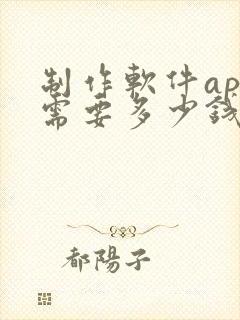 制作軟件ap
需要多少錢
都陽子